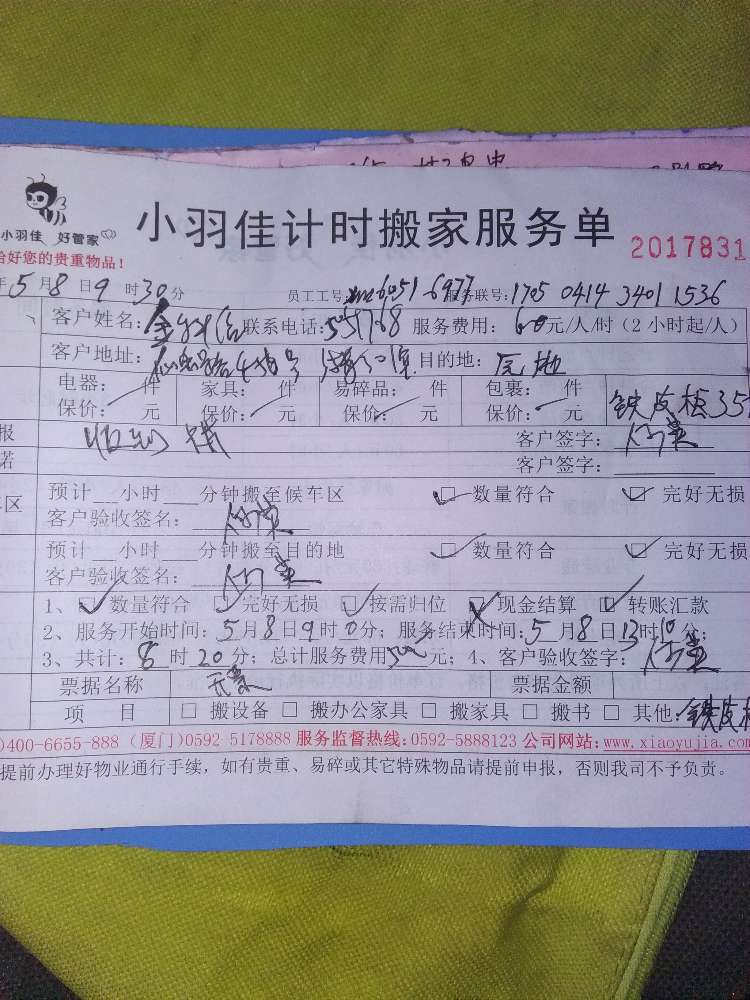 小羽佳 好管家
小羽佳计时搬家服务单 2017831
恰好您的贵重物品！
年5月8日9时30分 员工工号: 6051-6977 服务联号:1705 0414 3401 1536
客户姓名: 联系电话: 服务费用: 60元/人/时 (2 小时起/人)
客户地址: 目的地:
电器: 件 家具: 件 易碎品: 件 包裹: 件
保价: 元 保价: 元 保价: 元 保价: 元 铁皮板35
报 客户签字:
诺 客户签字:
车区 预计 小时 分钟搬至候车区 数量符合 完好无损
客户验收签名:
预计 小时 分钟搬至目的地 数量符合 完好无损
客户验收签名:
1、数量符合 完好无损 按需归位 现金结算 转账汇款
2、服务开始时间: 5月8日9时0分; 服务结束时间: 5月8日13时10分;
3、共计: 8时20分; 总计服务费用500元; 4、客户验收签字:
票据名称 票据金额
项 目 搬设备 搬办公家具 搬家具 搬书 其他: 铁皮板
)400-6655-888 (厦门)0592-5178888 服务监督热线:0592-5888123 公司网站:www.xiaoyujia.com
提前办理好物业通行手续，如有贵重、易碎或其它特殊物品请提前申报，否则我司不予负责。